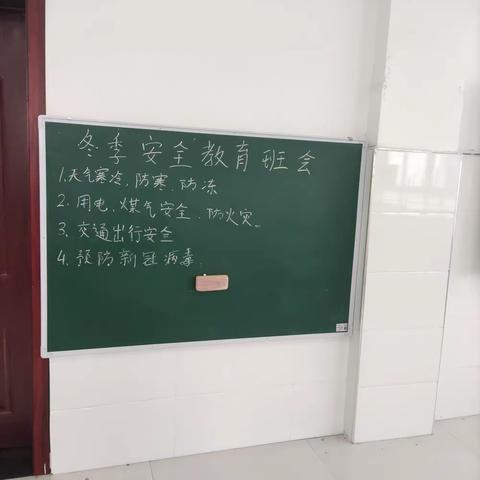 冬季安全教育班会
1.天气寒冷,防寒、防冻
2.用电、煤气安全、防火灾。
3.交通出行安全
4.预防新冠病毒.